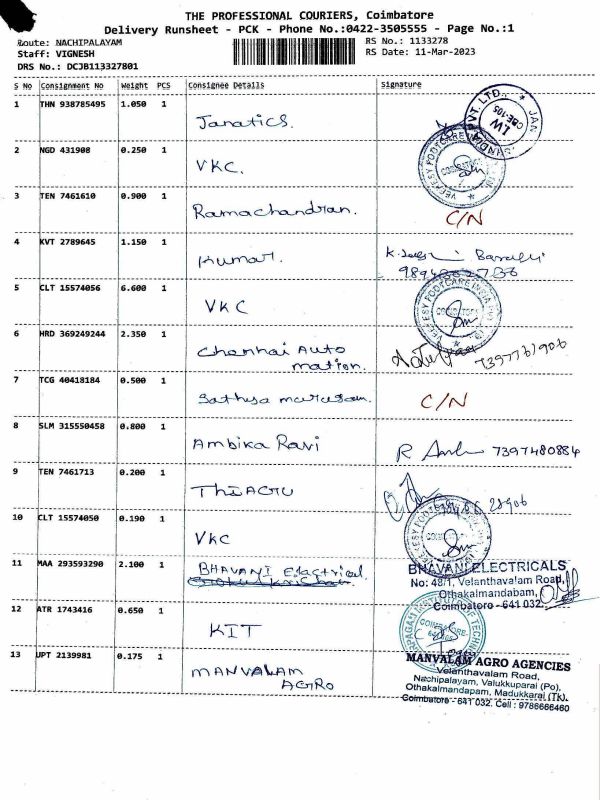 THE PROFESSIONAL COURIERS, Coimbatore
Delivery Runsheet - PCK - Phone No.:0422-3505555 - Page No.:1
Route: NACHIPALAYAM
RS No.: 1133278
Staff: VIGNESH
RS Date: 11-Mar-2023
DRS No.: DCJB113327801
S No Consignment No Weight PCS Consignee Details Signature
1 THN 938785495 1.050 1 Janatics.
LW CBE-105
2 NGD 431908 0.250 1 VKC.
3 TEN 7461610 0.900 1 Ramachandran. C/N
4 KVT 2789645 1.150 1 Kumar.
5 CLT 15574056 6.600 1 VKC
6 HRD 369249244 2.350 1 Chennai Auto
mation. 7397767906
7 TCG 40418184 0.500 1 C/N
8 SLM 315550458 0.800 1 Ambika Ravi R 7397480884
9 TEN 7461713 0.200 1 THIAGU
10 CLT 15574050 0.190 1 VKC
11 MAA 293593290 2.100 1 BHAVANI Electrical.
BHAVANI ELECTRICALS
No: 48/1, Velanthavalam Road,
Othakalmandabam,
Coimbatore - 641 032.
12 ATR 1743416 0.650 1 KIT
13 UPT 2139981 0.175 1 MANVALAM
AGRO
MANVALAM AGRO AGENCIES
Velanthavalam Road,
Nachipalayam, Valukkuparai (Po),
Othakalmandapam, Madukkarai (Tk).
Coimbatore - 641 032. Cell : 9786666460